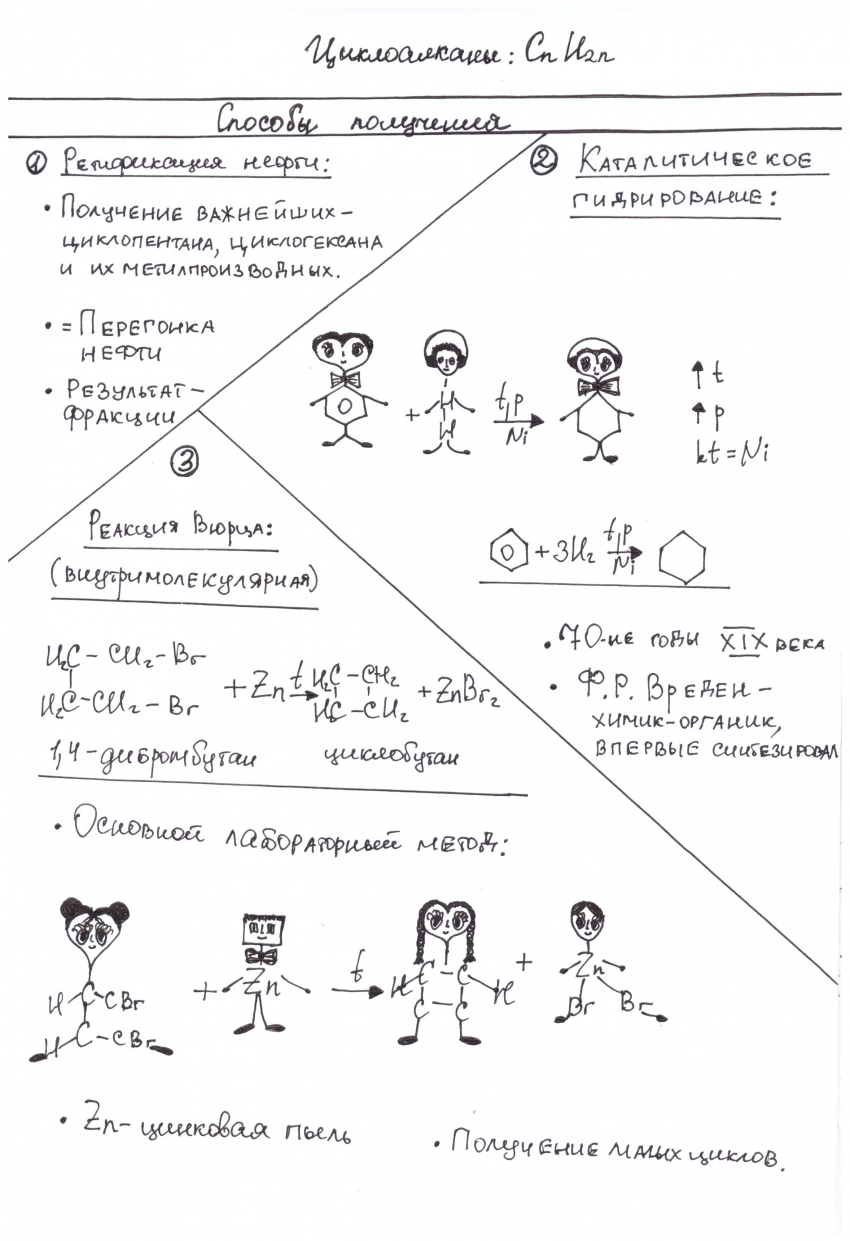 Циклоалканы: CnH2n
Способы получения
① Ретификация нефти:
• Получение важнейших –
циклопентана, циклогексана
и их метилпроизводных.
• = Перегонка
нефти
• Результат –
фракции
② Каталитическое
гидрирование:
+ H H t, p Ni
↑ t
↑ p
kt = Ni
+ 3H2 t, p Ni
• 70-ые годы XIX века
• Ф.Р. Вреден –
химик-органик,
впервые синтезировал
③
Реакция Вюрца:
(внутримолекулярная)
H2C – CH2 – Br
H2C – CH2 – Br
+ Zn t
H2C – CH2
HC – CH2
+ ZnBr2
1,4-дибромбутан циклобутан
• Основной лабораторный метод:
H C CBr
H C – CBr
+ Zn t
H C – C H
C – C
+ Zn
Br Br
• Zn – цинковая пыль
• Получение малых циклов.